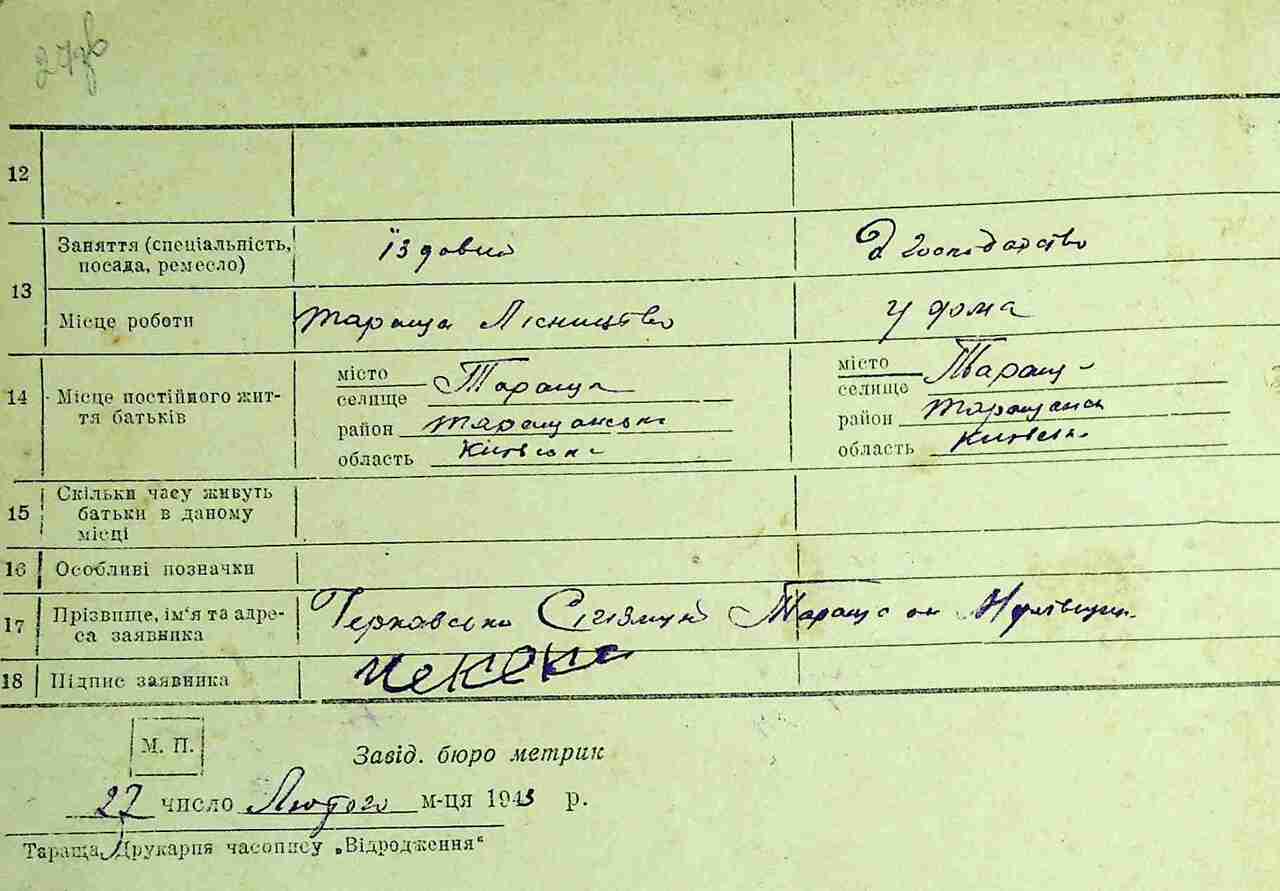 12
13 Заняття (спеціальність, посада, ремесло) їздовий Д господатство
Місце роботи тараща Лісництво у дома
14 Місце постійного жит-
тя батьків
місто
селище Тараща
район таращанськ
область Київськ
місто
селище Таращ
район таращанськ
область Київськ
15 Скільки часу живуть
батьки в даному
місці
16 Особливі позначки
17 Прізвище, ім'я та адре-
са заявника Тараща
18 Підпис заявника
М. П.
Завід. бюро метрик
27 число Лютого м-ця 1943 р.
Тараща, Друкарня часопису „Відродження“